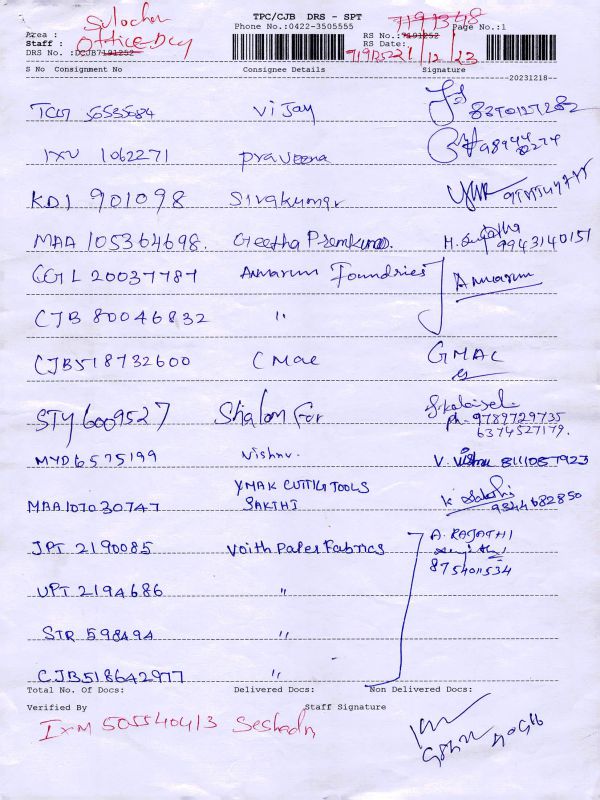 TPC/CJB DRS - SPT
Phone No.:0422-3505555
Page No.:1
Area :
Staff : Office Dly
DRS No. :DCJB7191252
RS No.:7191252
7191368
RS Date:
21/12/23
S No Consignment No Consignee Details Signature
20231218
56535684 Vijay
IXU 1062271 Praveena
KDI 901098 Sivakumar
MAA 105364698. Geetha Premkumar. 9943140151
CGL 20037787 Annarum Foundries Annarum
CJB 80046832 "
CJB518732600 CMAC GMAC
STY6009527 Shalom For ph. 9789729735
6374527179.
MYD6575199 Vishnu. V. Vishnu 8111057923
MAA107030747 YMAK CUTTING TOOLS
SAKTHI K. Sakthi 9344682850
JPT 2190085 Voith Paper Fabrics A. RAJATHI
8754011534
UPT 2194686 "
STR 598494 "
CJB518642977 "
Total No. Of Docs: Delivered Docs: Non Delivered Docs:
Verified By Staff Signature
IXM 505540413 Seshadri